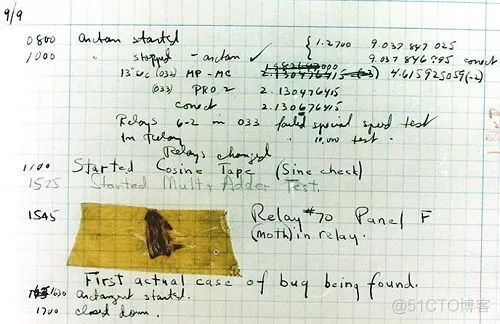 9/9
0800 Arctan started
1000 " stopped - arctan ✓ { 1.2700 9.037 847 025
9.037 846 995 conect
13" uc (032) MP - MC 2.130476415 (-3) 4.615925059(-2)
(033) PRO 2 2.130476415
conect 2.130676415
Relays 6-2 in 033 failed special speed test
In Relay " 10,000 test.
Relays changed
1100 Started Cosine Tape (Sine check)
1525 Started Mult + Adder Test.
1545 Relay #70 Panel F
(moth) in relay.
First actual case of bug being found.
1630 arctangent started.
1700 closed down.
@51CTO博客